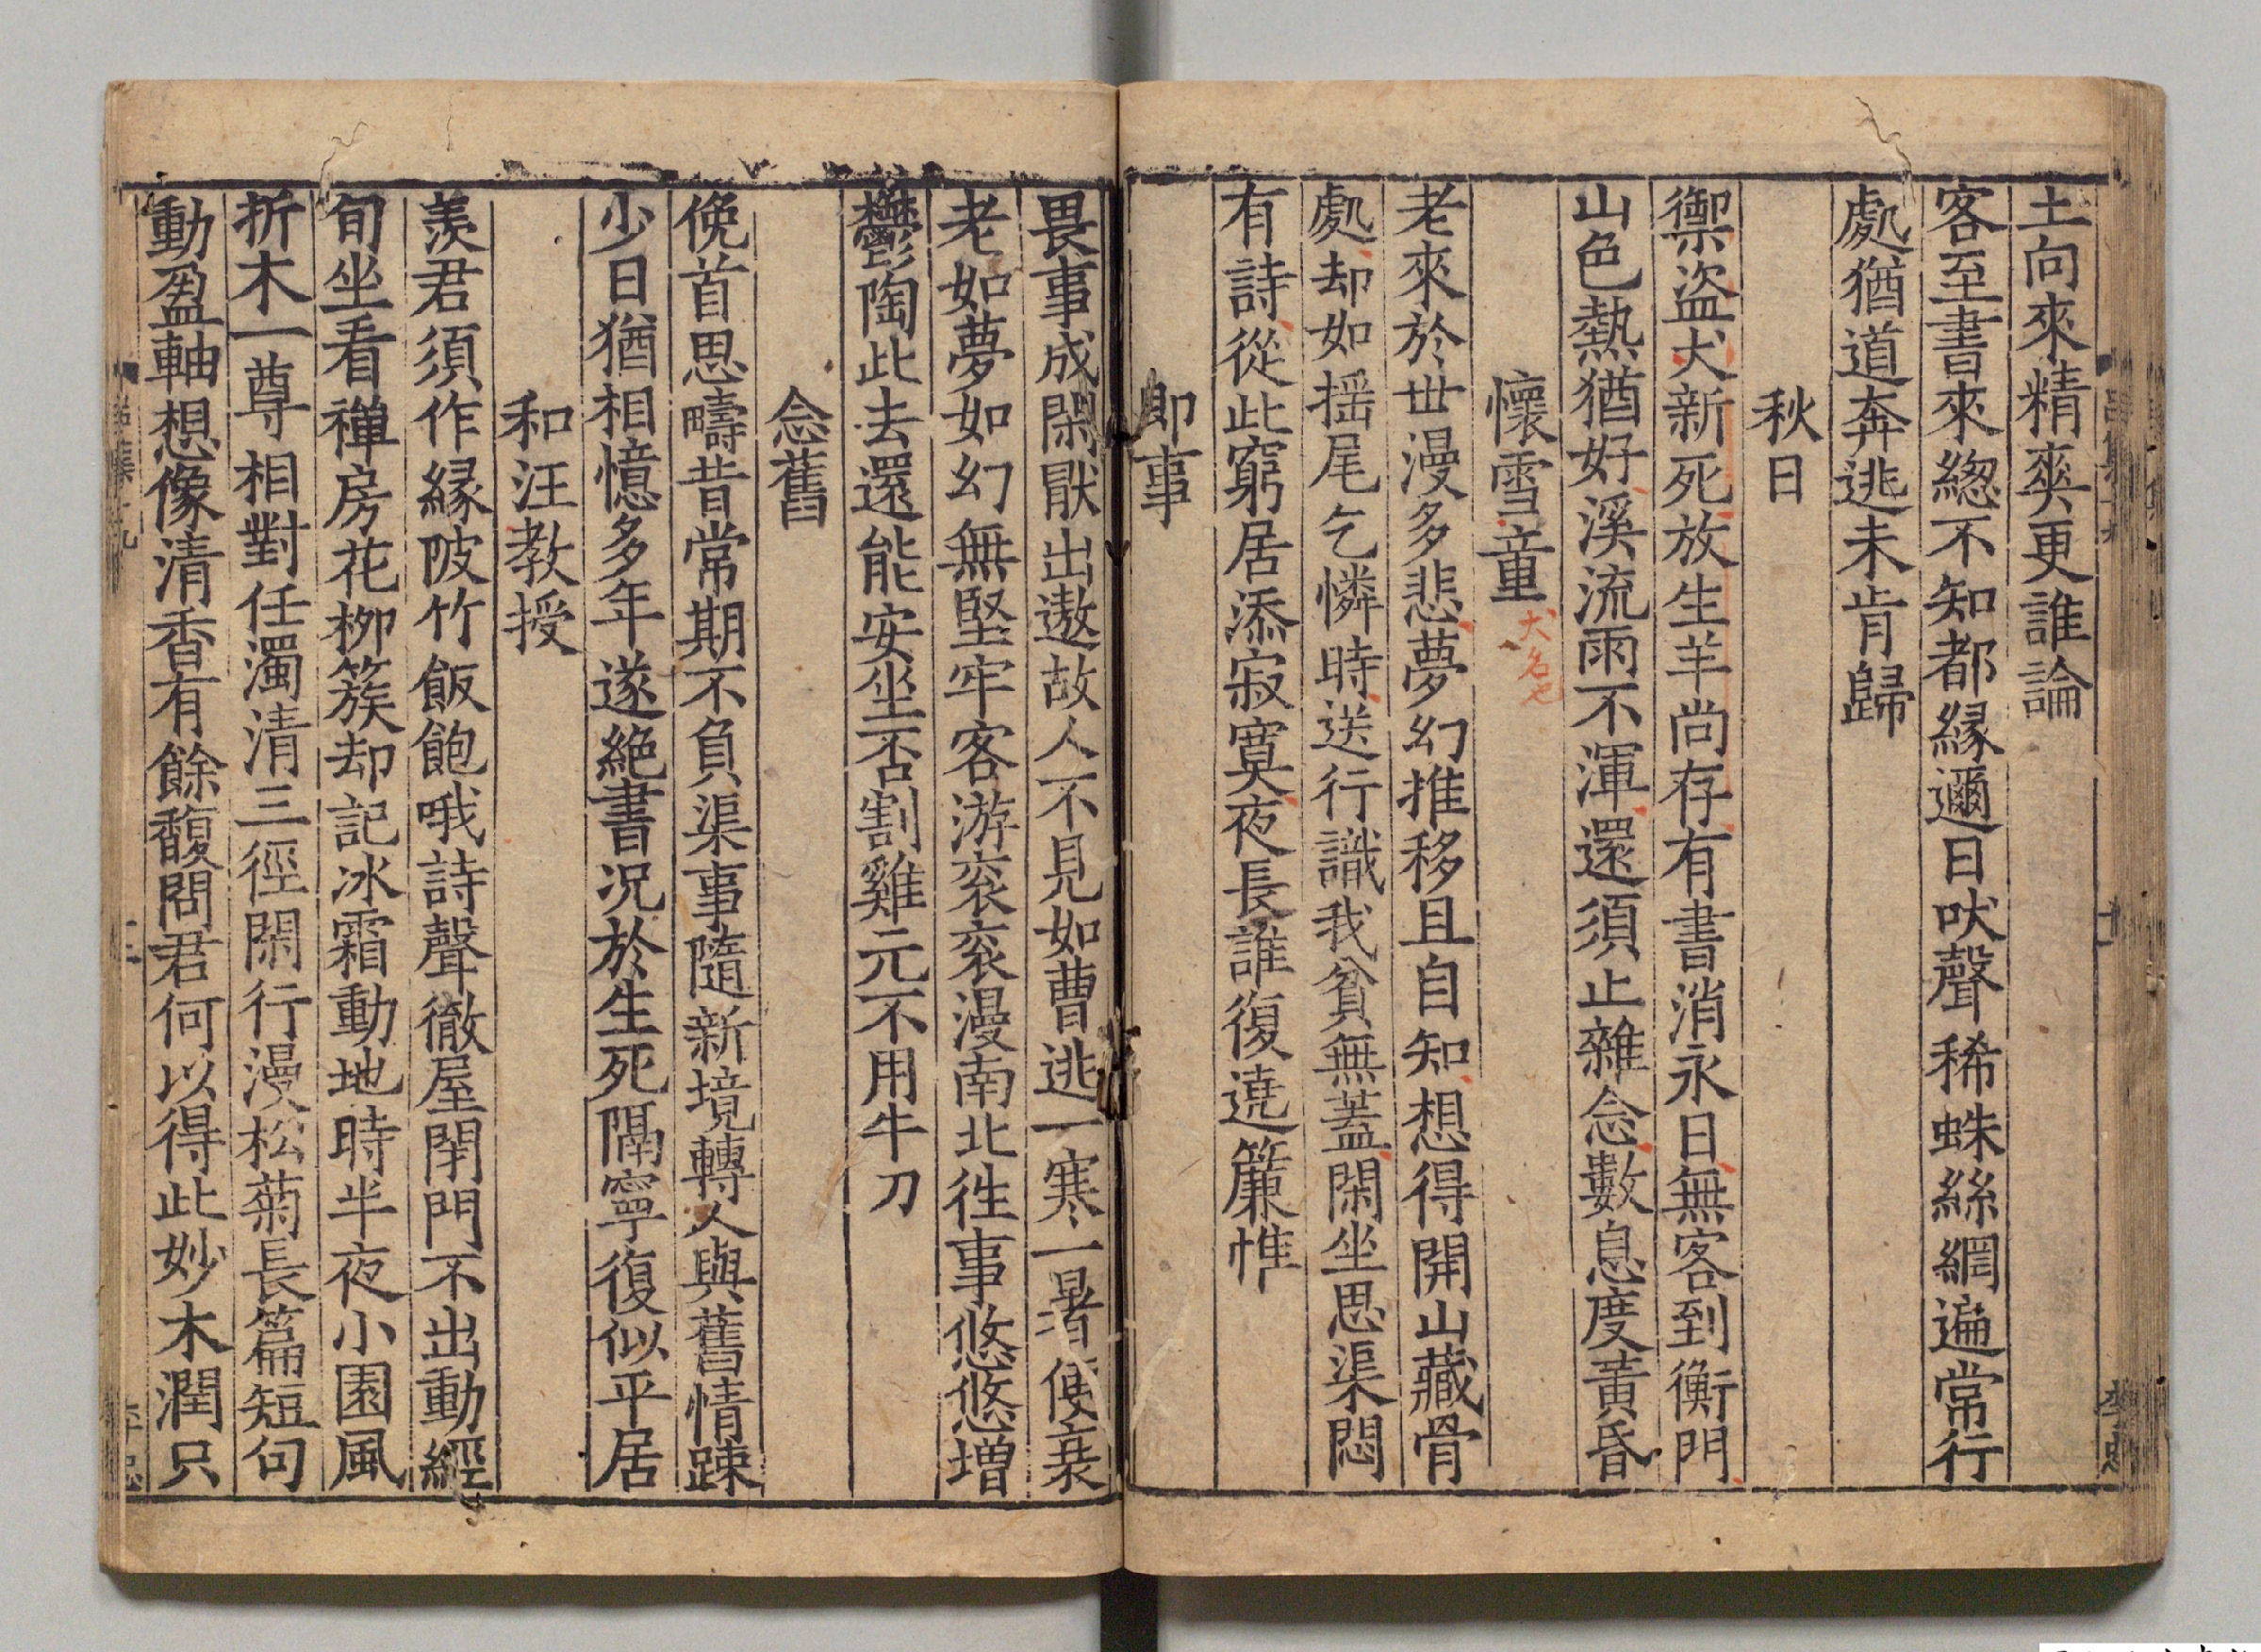 土向來精爽更誰論
客至書來緫不知都縁邇日吠聲稀蛛絲網遍常行
處猶道奔逃未肯歸
秋日
禦盗犬新死放生羊尚存有書消永日無客到衡門
山色熱猶好溪流雨不渾還須止雜念數息度黃昏
懷雪童
犬名也
老來於世漫多悲夢幻推移且自知想得開山藏骨
處却如揺尾乞憐時送行識我貧無蓋閑坐思渠悶
有詩從此窮居添寂寞夜長誰復遶簾帷
即事
畏事成閑厭出遨故人不見如曹逃一寒一暑侵衰
老如夢如幻無堅牢客游衮衮漫南北徃事悠悠增
鬱陶此去還能安坐否割雞元不用牛刀
念舊
俛首思疇昔常期不負渠事隨新境轉人與舊情踈
少日猶相憶多年遂絶書况於生死隔寧復似平居
和汪教授
羡君須作縁陂竹飯飽哦詩聲徹屋閉門不出動經
旬坐看禪房花柳簇却記冰霜動地時半夜小園風
折木一尊相對任濁清三徑閑行漫松菊長篇短句
動盈軸想像清香有餘馥問君何以得此妙木潤只